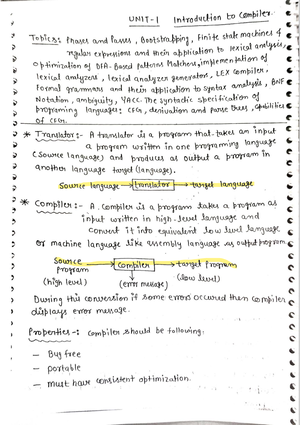 UNIT-1 Introduction to Compiler
Topics: Phases and Passes, Bootstrapping, Finite state machines &
regular expressions and their application to lexical analysis,
optimization of DFA-Based Patterns Matchers, implementation of
lexical analyzers, lexical analyzer generator, LEX compiler,
Formal grammars and their application to syntax analysis, BNF
Notation, ambiguity, YACC. The syntactic specification of
programming languages: CFG, derivation and parse trees, capabilities
of CFG.
* Translator:- A translator is a program that takes an input
a program written in one programming language
(source language) and produces as output a program in
another language target (language).
Source language → translator → target language
* Compiler:- A compiler is a program takes a program as
input written in high-level language and
convert it into equivalent low level language
or machine language like assembly language as output program
Source program → Compiler → target program
(high level) (error message) (low level)
During this conversion if some errors occured then compiler
displays error message.
Properties-: Compiler should be following:
— Bug free
— portable
— must have consistent optimization.